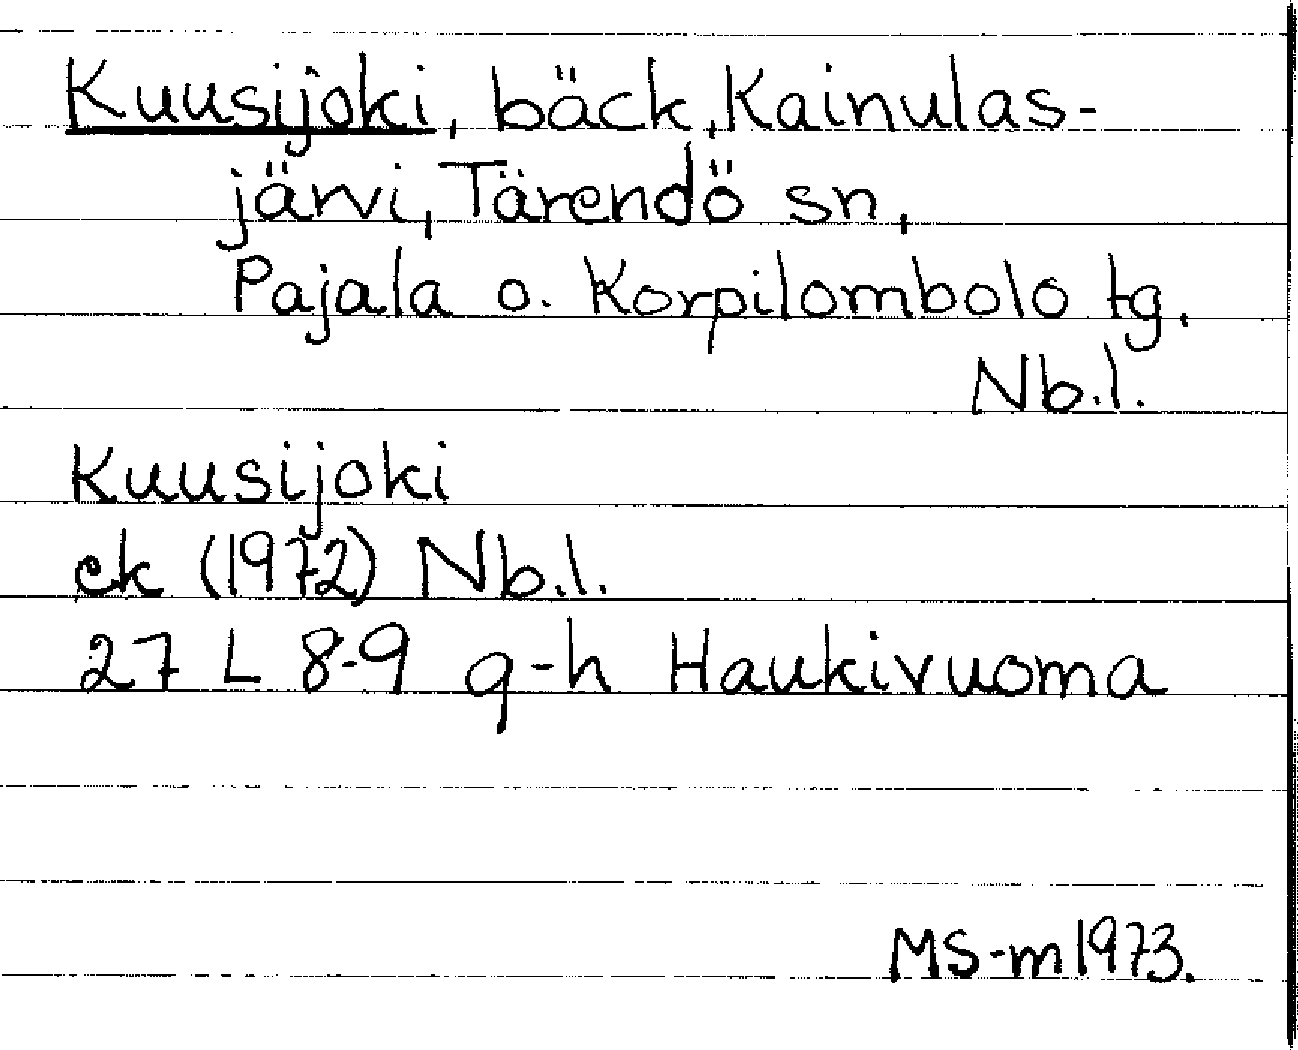 Kuusijoki, bäck, Kainulas-
järvi, Tärendö sn,
Pajala o. Korpilombolo tg.
Nb.l.
Kuusijoki
ek (1972) Nb.l.
27 L 8-9 g-h Haukivuoma
MS-m 1973.